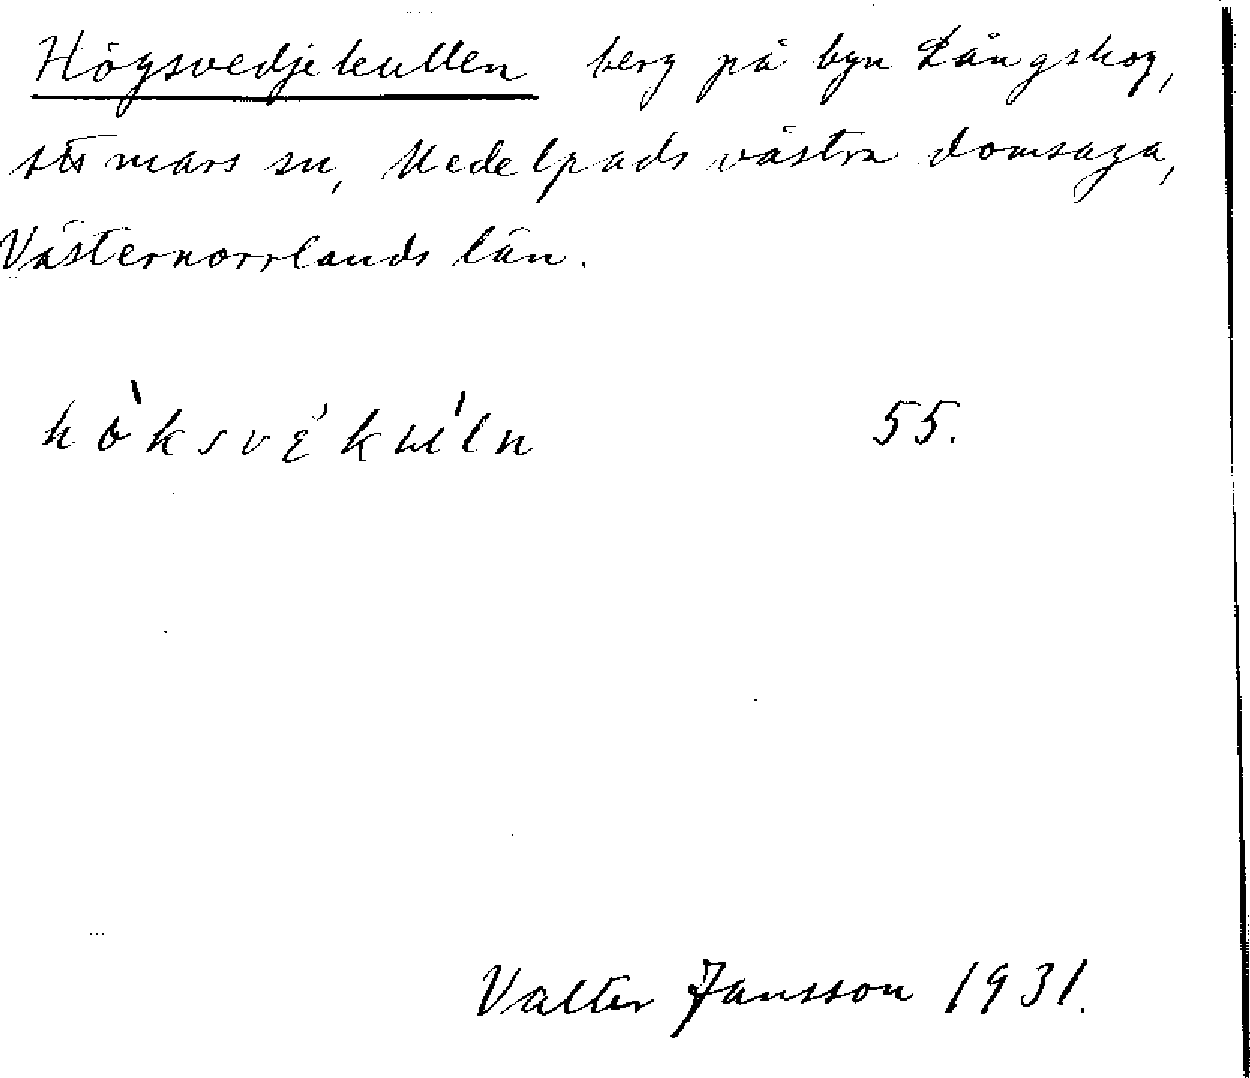 Högsvedjekullen berg på byn Långskog,
Attmars sn, Medelpads västra domsaga,
Västernorrlands län.
hòksvékuĺn 55.
Valter Jansson 1931.